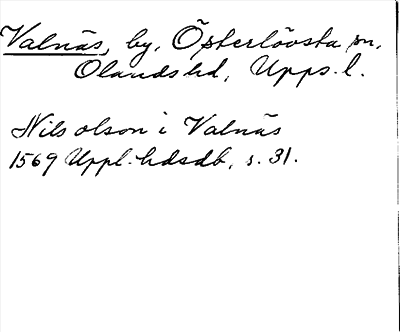 Valnäs, by, Österlövsta sn,
Olands hd, Upps. l.
Nils olson i Valnäs
1569 Uppl. hdsdb, s. 31.